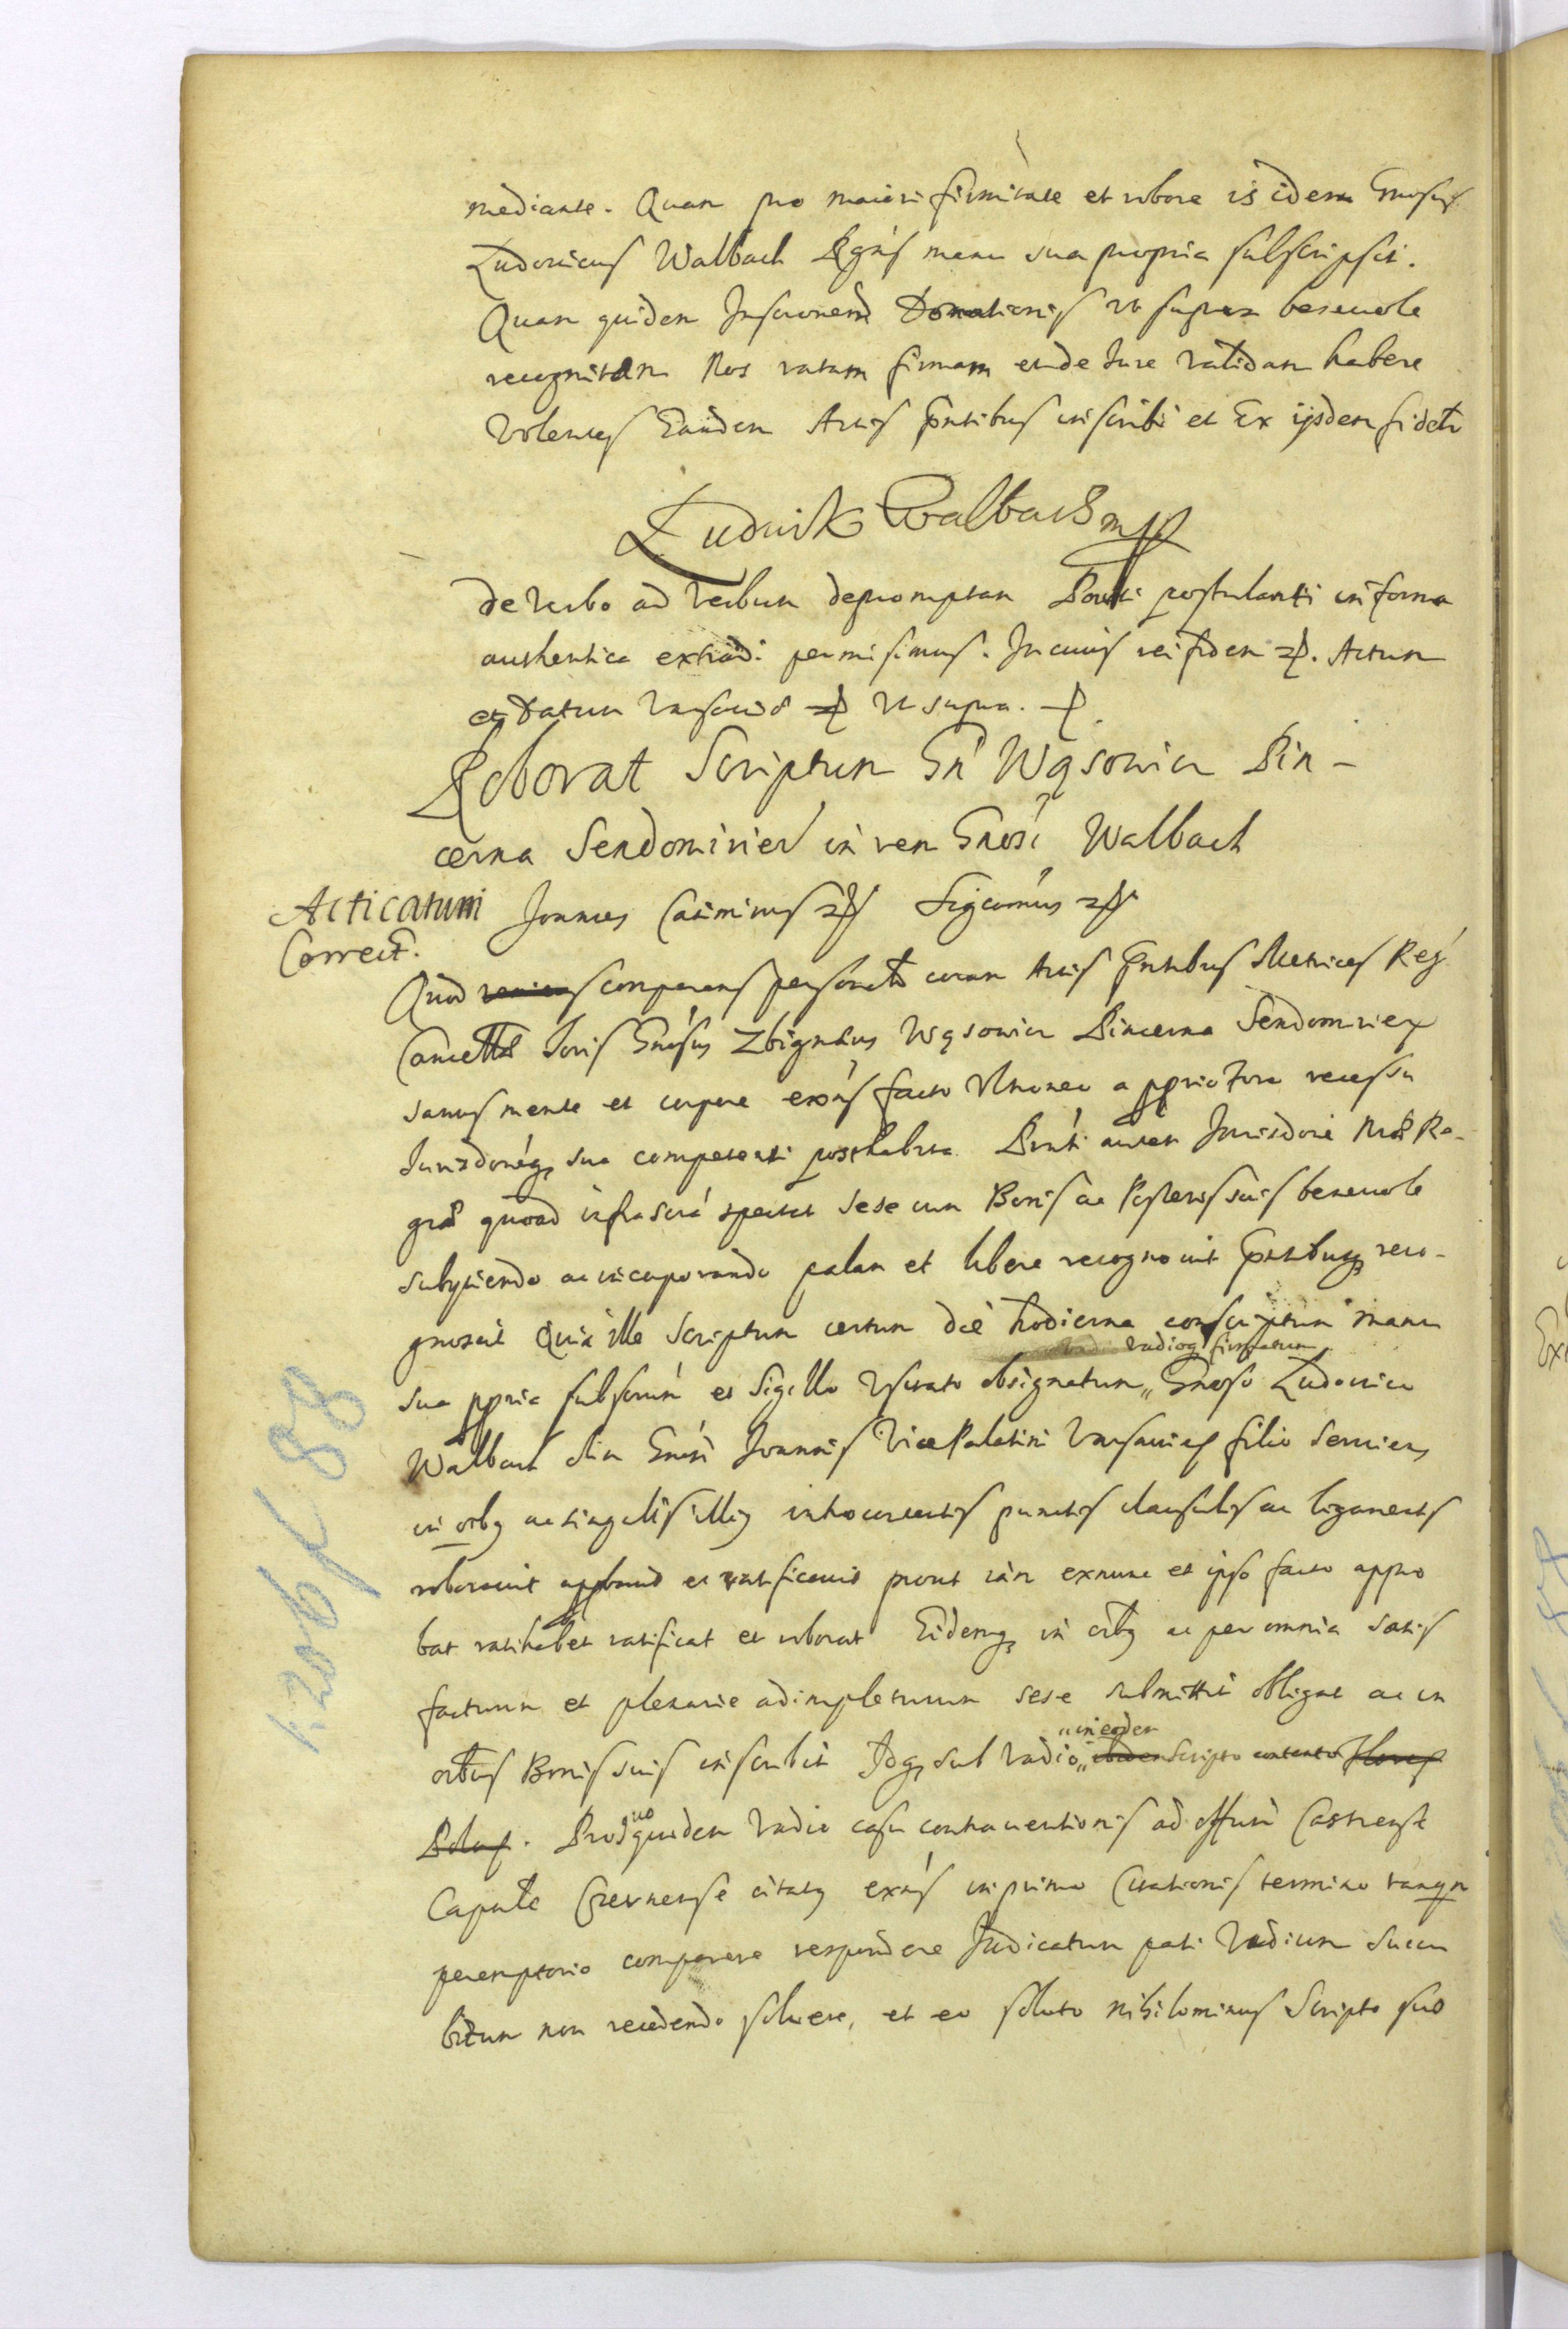 mediante. Quam pro maiori firmitate et robore is idem Gnosus
Ludovicus Walbach Rgńs manu sua propria subscripsit.
Quam quidem Inscrionem Donationis ut supra benevole
recognitam Nos ratam firmam et de Iure validam habere
Volentes Eandem Actis pntibus inscribi et Ex ijsdem fidelr
Ludwik Walbach mp
de verbo ad verbum depromptam Parti postulanti in forma
authentica extradi permisimus. In cuius rei fidem etc. Actum
et Datum Varsaviæ etc ut supra. etc.
Roborat Scriptum Gń Wąsowicz Pin-
cerna Sendomirien in rem Gnosi Walbach
Acticatum Joannes Casimirus etc Sigcamus etc
Correct.
Quod veniens comparens personalr coram Actis pntibus Metrices Reg
Cancellæ Ioris Gnosus Zbigneus Wąsowicz Pincerna Sendomirien
sanus mente et corpore exńs facto Vltroneo a pprio Foro recessu
Iurisdoneq sua competenti posthabita Pnti autem Jurisdoni Mæ Re-
giæ quoad infrascra spectat sese cum Bonis ac Posteris suis benevole
subijciendo ac incorporando palam et libere recognovit pntibusq reco-
gnoscit Quia ille Scriptum certum die hodierna conscriptum manu
vadioq firmatum
sua ppria subscrum et Sigillo Usitato obsignatum „ Gnoso Ludovico
Walbach olim Gnosi Joannis Vice Palatini Varsavien filio serviens
in oibq ac singulis illiq inibi contentis punctis clausulis ac ligamentis
roboravit appbavit et ratificavit prout iãm exnunc et ipso facto appro
bat ratihabet ratificat et roborat Eidemq in oibq ac per omnia satis
facturum et plenarie adimpleturum sese submittit obligat ac in
„ in eodem
oibus Bonis suis inscribit Idq sub vadio „ ibidem Scripto contento Floren
Polon. Pro quo quidem Vadio casu contraventionis ad offum Castrense
Capitale Czernense citatq exńs in primo Citationis termino tanqm
peremptorio comparere respondere Judicatum pati Vadium succu
bitum non recedendo solvere, et eo soluto nihilominus Scripto suo
1206/ 88